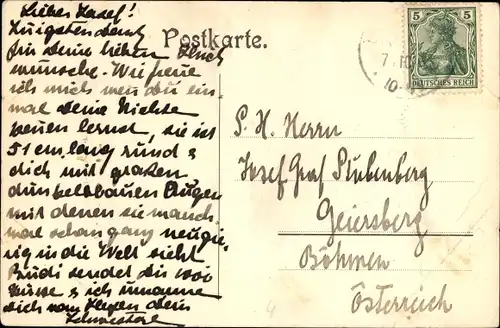 Lieber Josef!
Innigsten Dank
für Deine lieben Glück
wünsche. Wie freue
ich mich wen du ein
mal Deine Nichte
kennen lernst, sie ist
51 cm. lang rund &
dick mit großen
dunkelblauen Augen
mit denen sie manch
mal schon ganz neugie-
rig in die Welt sieht
Rudi sendet dir 1000
Küsse & ich umarme
dich vom Herzen Dein
Schwesterl
Postkarte.
5 5
DEUTSCHES REICH
7.10
10-11
S. H. Herrn
Josef Graf Stubenberg
Geiersberg
Böhmen
Österreich